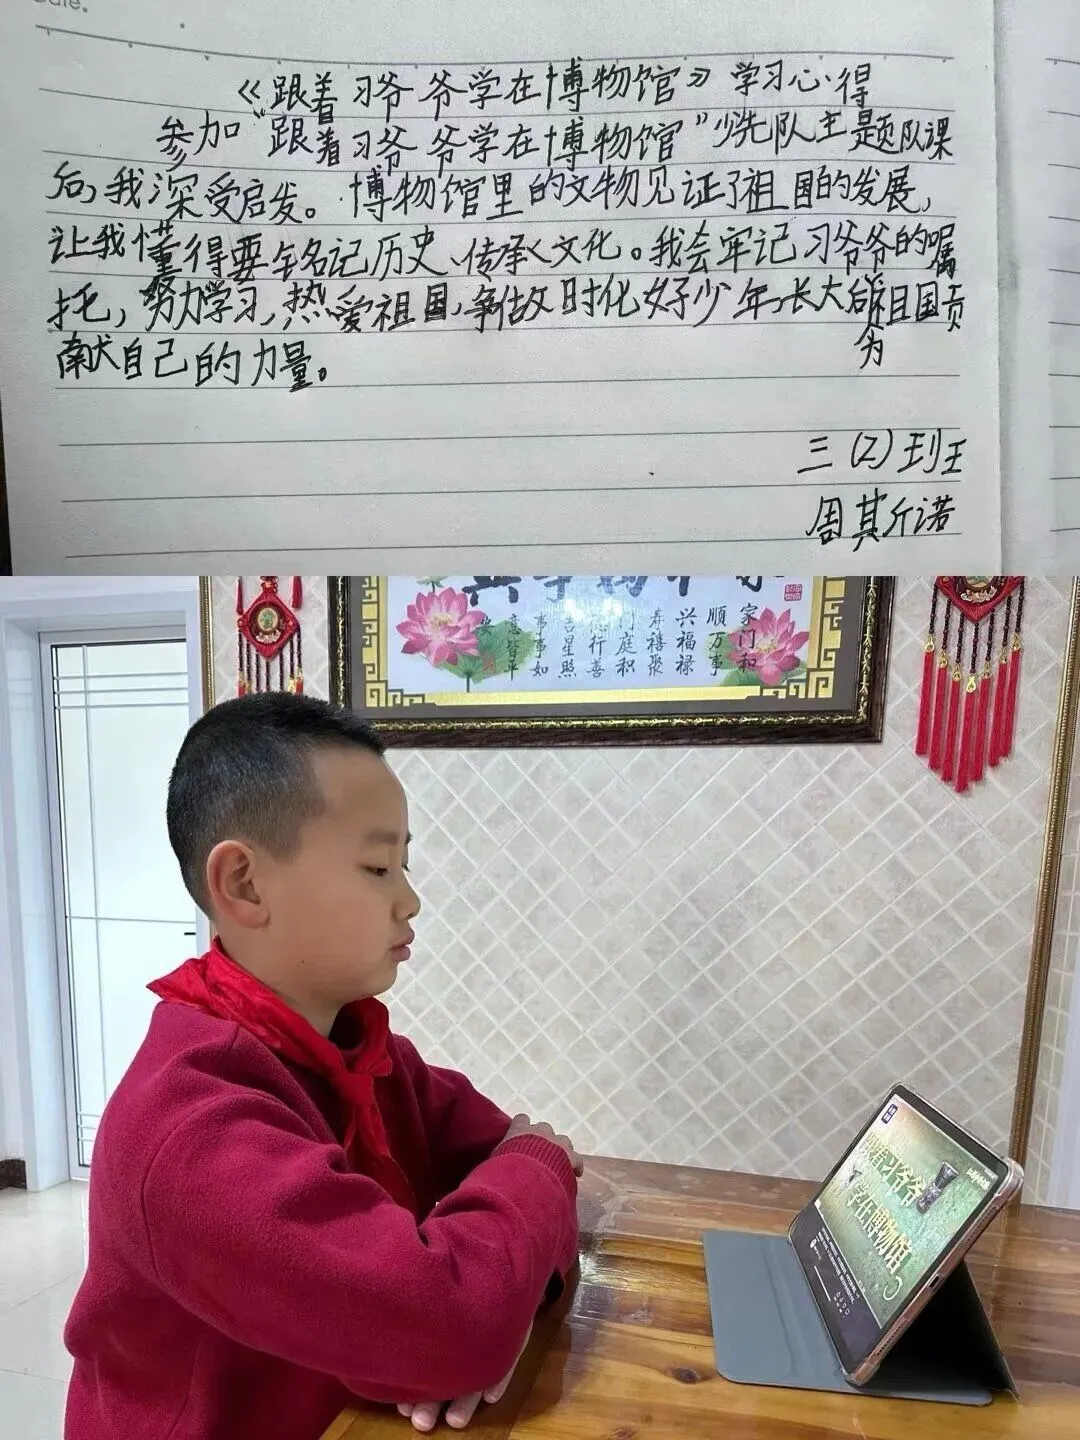 《跟着习爷爷学在博物馆》学习心得
参加"跟着习爷爷学在博物馆"少先队主题队课
后,我深受启发。博物馆里的文物见证了祖国的发展,
让我懂得要铭记历史、传承文化。我会牢记习爷爷的嘱
托,努力学习,热爱祖国,争做时代好少年,长大后为祖国贡
献自己的力量。
三(2)班
周其斤诺
家门和
顺万事
兴福禄
寿禧聚
门庭积
行善
吉星照
事事如
意皆平
安
跟着习爷爷
学在博物馆